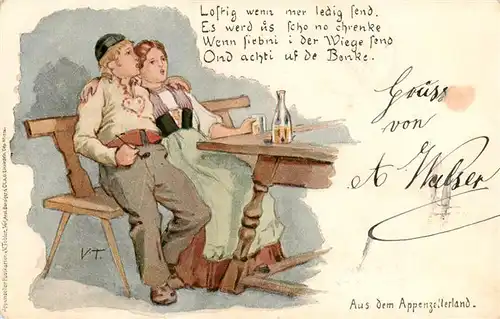 Lostig wenn mer ledig send.
Es werd üs scho no chrenke
Wenn siebni i der Wiege send
Ond achti uf de Benke.
Gruss
von
A. Walser
VT.
Aus dem Appenzellerland.